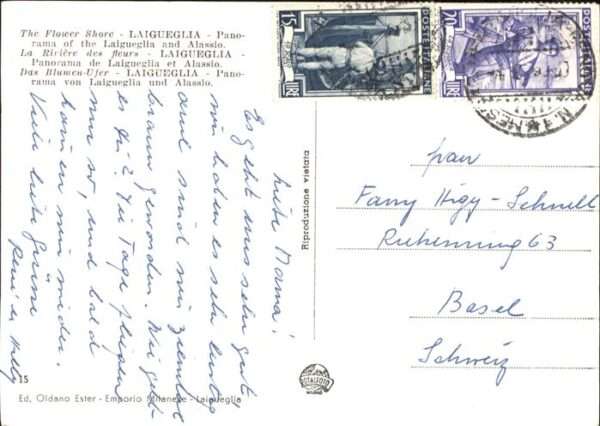 The Flower Shore - LAIGUEGLIA - Pano-
rama of the Laigueglia and Alassio.
La Rivière des fleurs - LAIGUEGLIA -
Panorama de Laigueglia et Alassio.
Das Blumen-Ufer - LAIGUEGLIA - Pano-
rama von Laigueglia und Alassio.
Liebe Mama!
Es geht uns sehr gut,
wir haben es sehr lustig
und sind wir ziemlich
braun geworden. Wie geht
es dir? Die Tage fliehen
nur so, und bald
kommen wir wieder.
Viele liebe Grüsse
René & Nelly
15
Ed. Oldano Ester - Emporio Milanese - Laigueglia
Riproduzione vietata
15
LIRE
POSTE ITALIANE
20
LIRE
POSTE ITALIANE
Frau
Fanny Hügy-Schnell
Riehenring 63
Basel
Schweiz